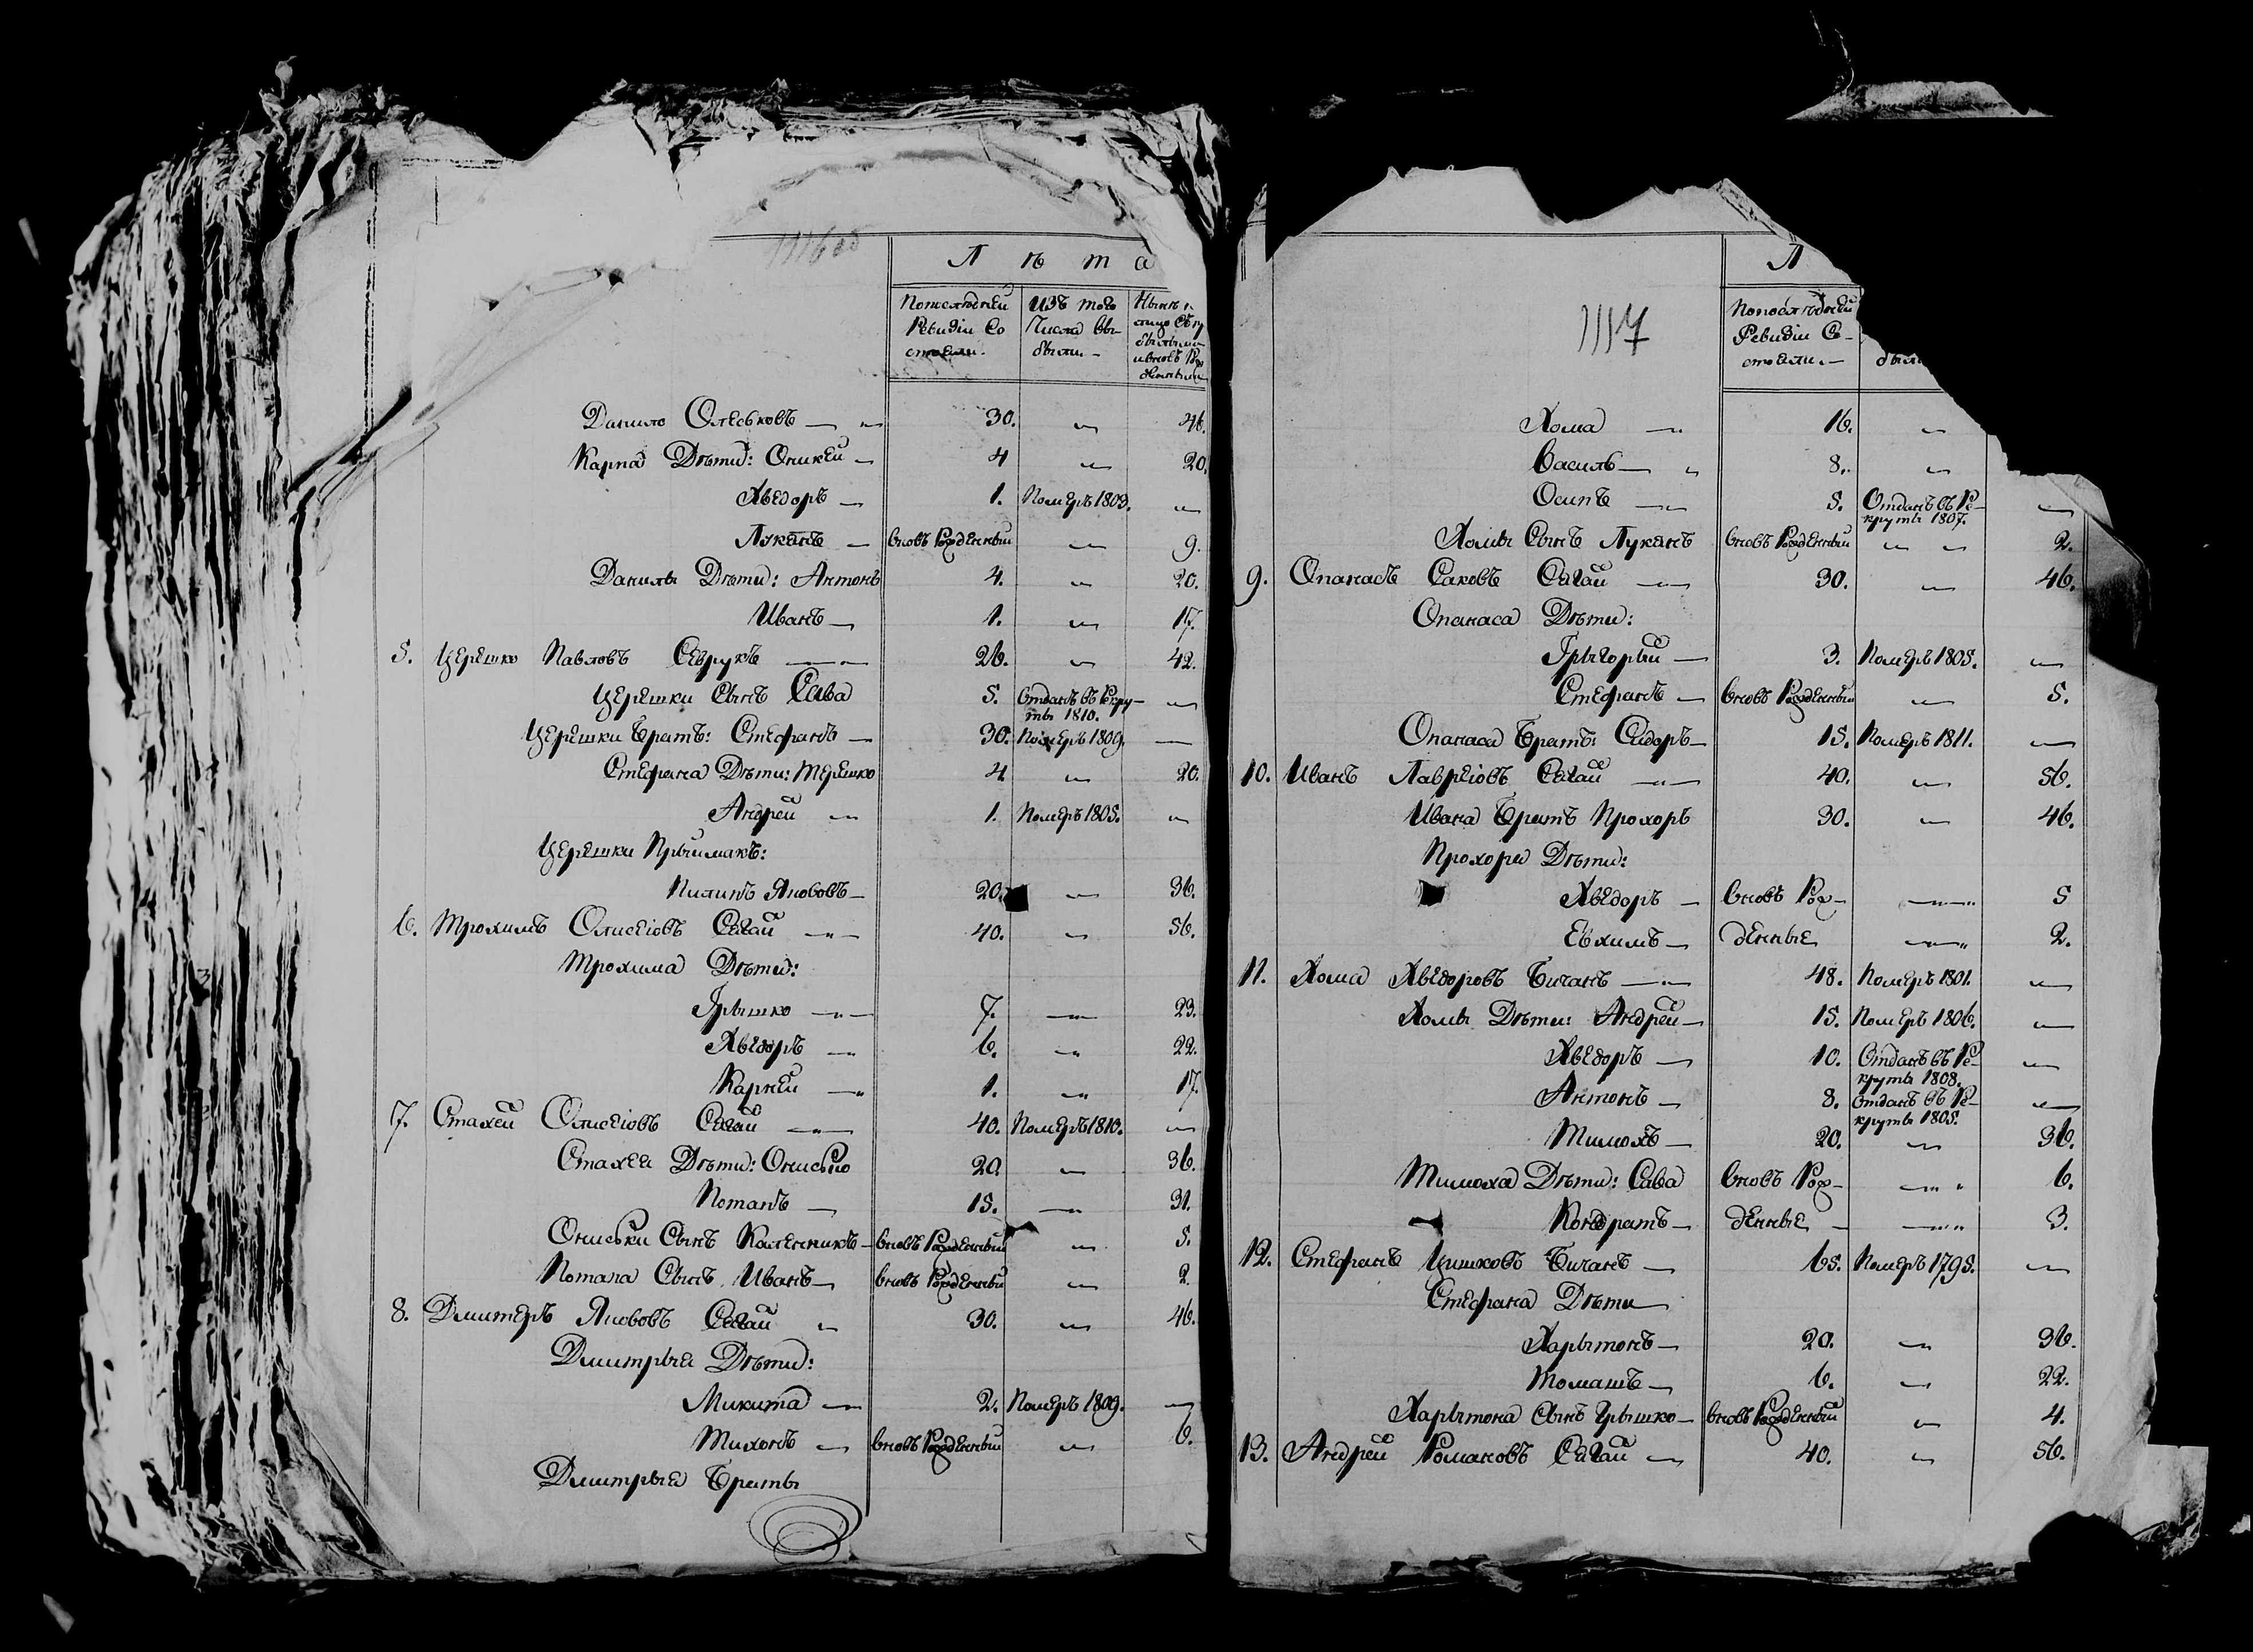 Л ѣ т а
Попослѣдней Ревизіи Состояли.
Изъ того Числа выбыли.
Данило Олеськовъ 30. 46.
Карпа Дѣти: Оникей 4 20.
Хведоръ 1. Померъ 1803.
Луканъ вновь Рожденный 9.
Данилы Дѣти: Антонъ 4. 20.
Иванъ 1. 17.
5. Церешко Павловъ Севрукъ 26. 42.
Церешки Сынъ Сава 5. Отданъ въ Рекруты 1810.
Церешки Братъ: Стефанъ 30. Померъ 1809.
Стефана Дѣти: Терешко 4 20.
Андрей 1. Померъ 1805.
Церешки Прыймакъ:
Пилипъ Яковovъ 20. 36.
6. Трохимъ Олисеіовъ Сегай 40. 56.
Трохима Дѣти:
Грышко 7. 23.
Хведоръ 6. 22.
Карней 1. 17.
7. Стахей Олисеіовъ Сегай 40. Померъ 1810.
Стахея Дѣти: Онисько 20. 36.
Потапъ 15. 31.
Ониськи Сынъ Каленникъ вновь Рожденный 5.
Потапа Сынъ Иванъ вновь Рожденный 2.
8. Дмитеръ Яковovъ Сегай 30. 46.
Дмитрыя Дѣти:
Микита 2. Померъ 1809.
Тихонъ вновь Рожденный 6.
Дмитрыя Браты
1117
Л
Попослѣдней Ревизіи Состояли.
Хома 16.
Василь 8.
Осипъ 5. Отданъ въ Рекруты 1807.
Хомы Сынъ Луканъ вновь Рожденный 2.
9. Опанасъ Саковъ Сегай 30. 46.
Опанаса Дѣти:
Грыгорый 3. Померъ 1805.
Стефанъ вновь Рожденный 5.
Опанаса Братъ: Сидоръ 15. Померъ 1811.
10. Иванъ Лавреіовъ Сегай 40. 56.
Ивана Братъ Прохоръ 30. 46.
Прохора Дѣти:
Хведоръ вновь Рож- 5
Евхимъ денные 2.
11. Хома Хведоровъ Бичанъ 48. Померъ 1801.
Хомы Дѣти: Андрей 15. Померъ 1806.
Хведоръ 10. Отданъ въ Рекруты 1808.
Антонъ 8. Отданъ въ Рекруты 1805.
Тимохъ 20. 36.
Тимоха Дѣти: Сава вновь Рож- 6.
Кондратъ денные 3.
12. Стефанъ Цишковъ Бичанъ 65. Померъ 1795.
Стефана Дѣти
Харытонъ 20. 36.
Томашъ 6. 22.
Харытона Сынъ Грышко вновь Рожденный 4.
13. Андрей Романовъ Сегай 40. 56.